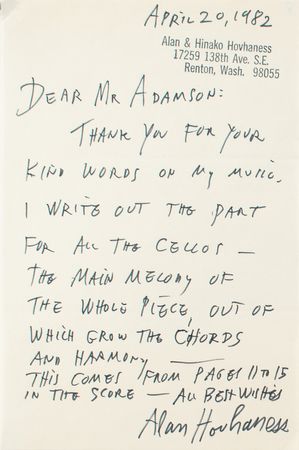 APRIL 20, 1982
Alan & Hinako Hovhaness
17259 138th Ave. S.E.
Renton, Wash. 98055
DEAR MR ADAMSON:
THANK YOU FOR YOUR
KIND WORDS ON MY MUSIC.
I WRITE OUT THE PART
FOR ALL THE CELLOS —
THE MAIN MELODY OF
THE WHOLE PIECE, OUT OF
WHICH GROW THE CHORDS
AND HARMONY —
THIS COMES FROM PAGES 11 TO 15
IN THE SCORE — ALL BEST WISHES
Alan Hovhaness